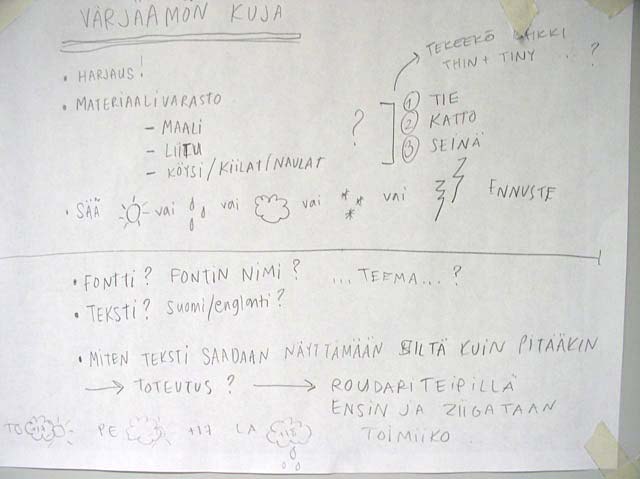 VÄRJÄÄMÖN KUJA
• HARJAUS!
• MATERIAALIVARASTO
– MAALI
– LIITU
– KÖYSI/KIILAT/NAULAT
?
TEKEEKÖ KAIKKI
THIN + TINY ...?
① TIE
② KATTO
③ SEINÄ
• SÄÄ vai vai vai vai ENNUSTE
• FONTTI? FONTIN NIMI? ...TEEMA...?
• TEKSTI? Suomi/englanti?
• MITEN TEKSTI SAADAAN NÄYTTÄMÄÄN SILTÄ KUIN PITÄÄKIN
→ TOTEUTUS? → ROUDARITEIPILLÄ
ENSIN JA ZIIGATAAN
TOIMIIKO
TO PE +17 LA